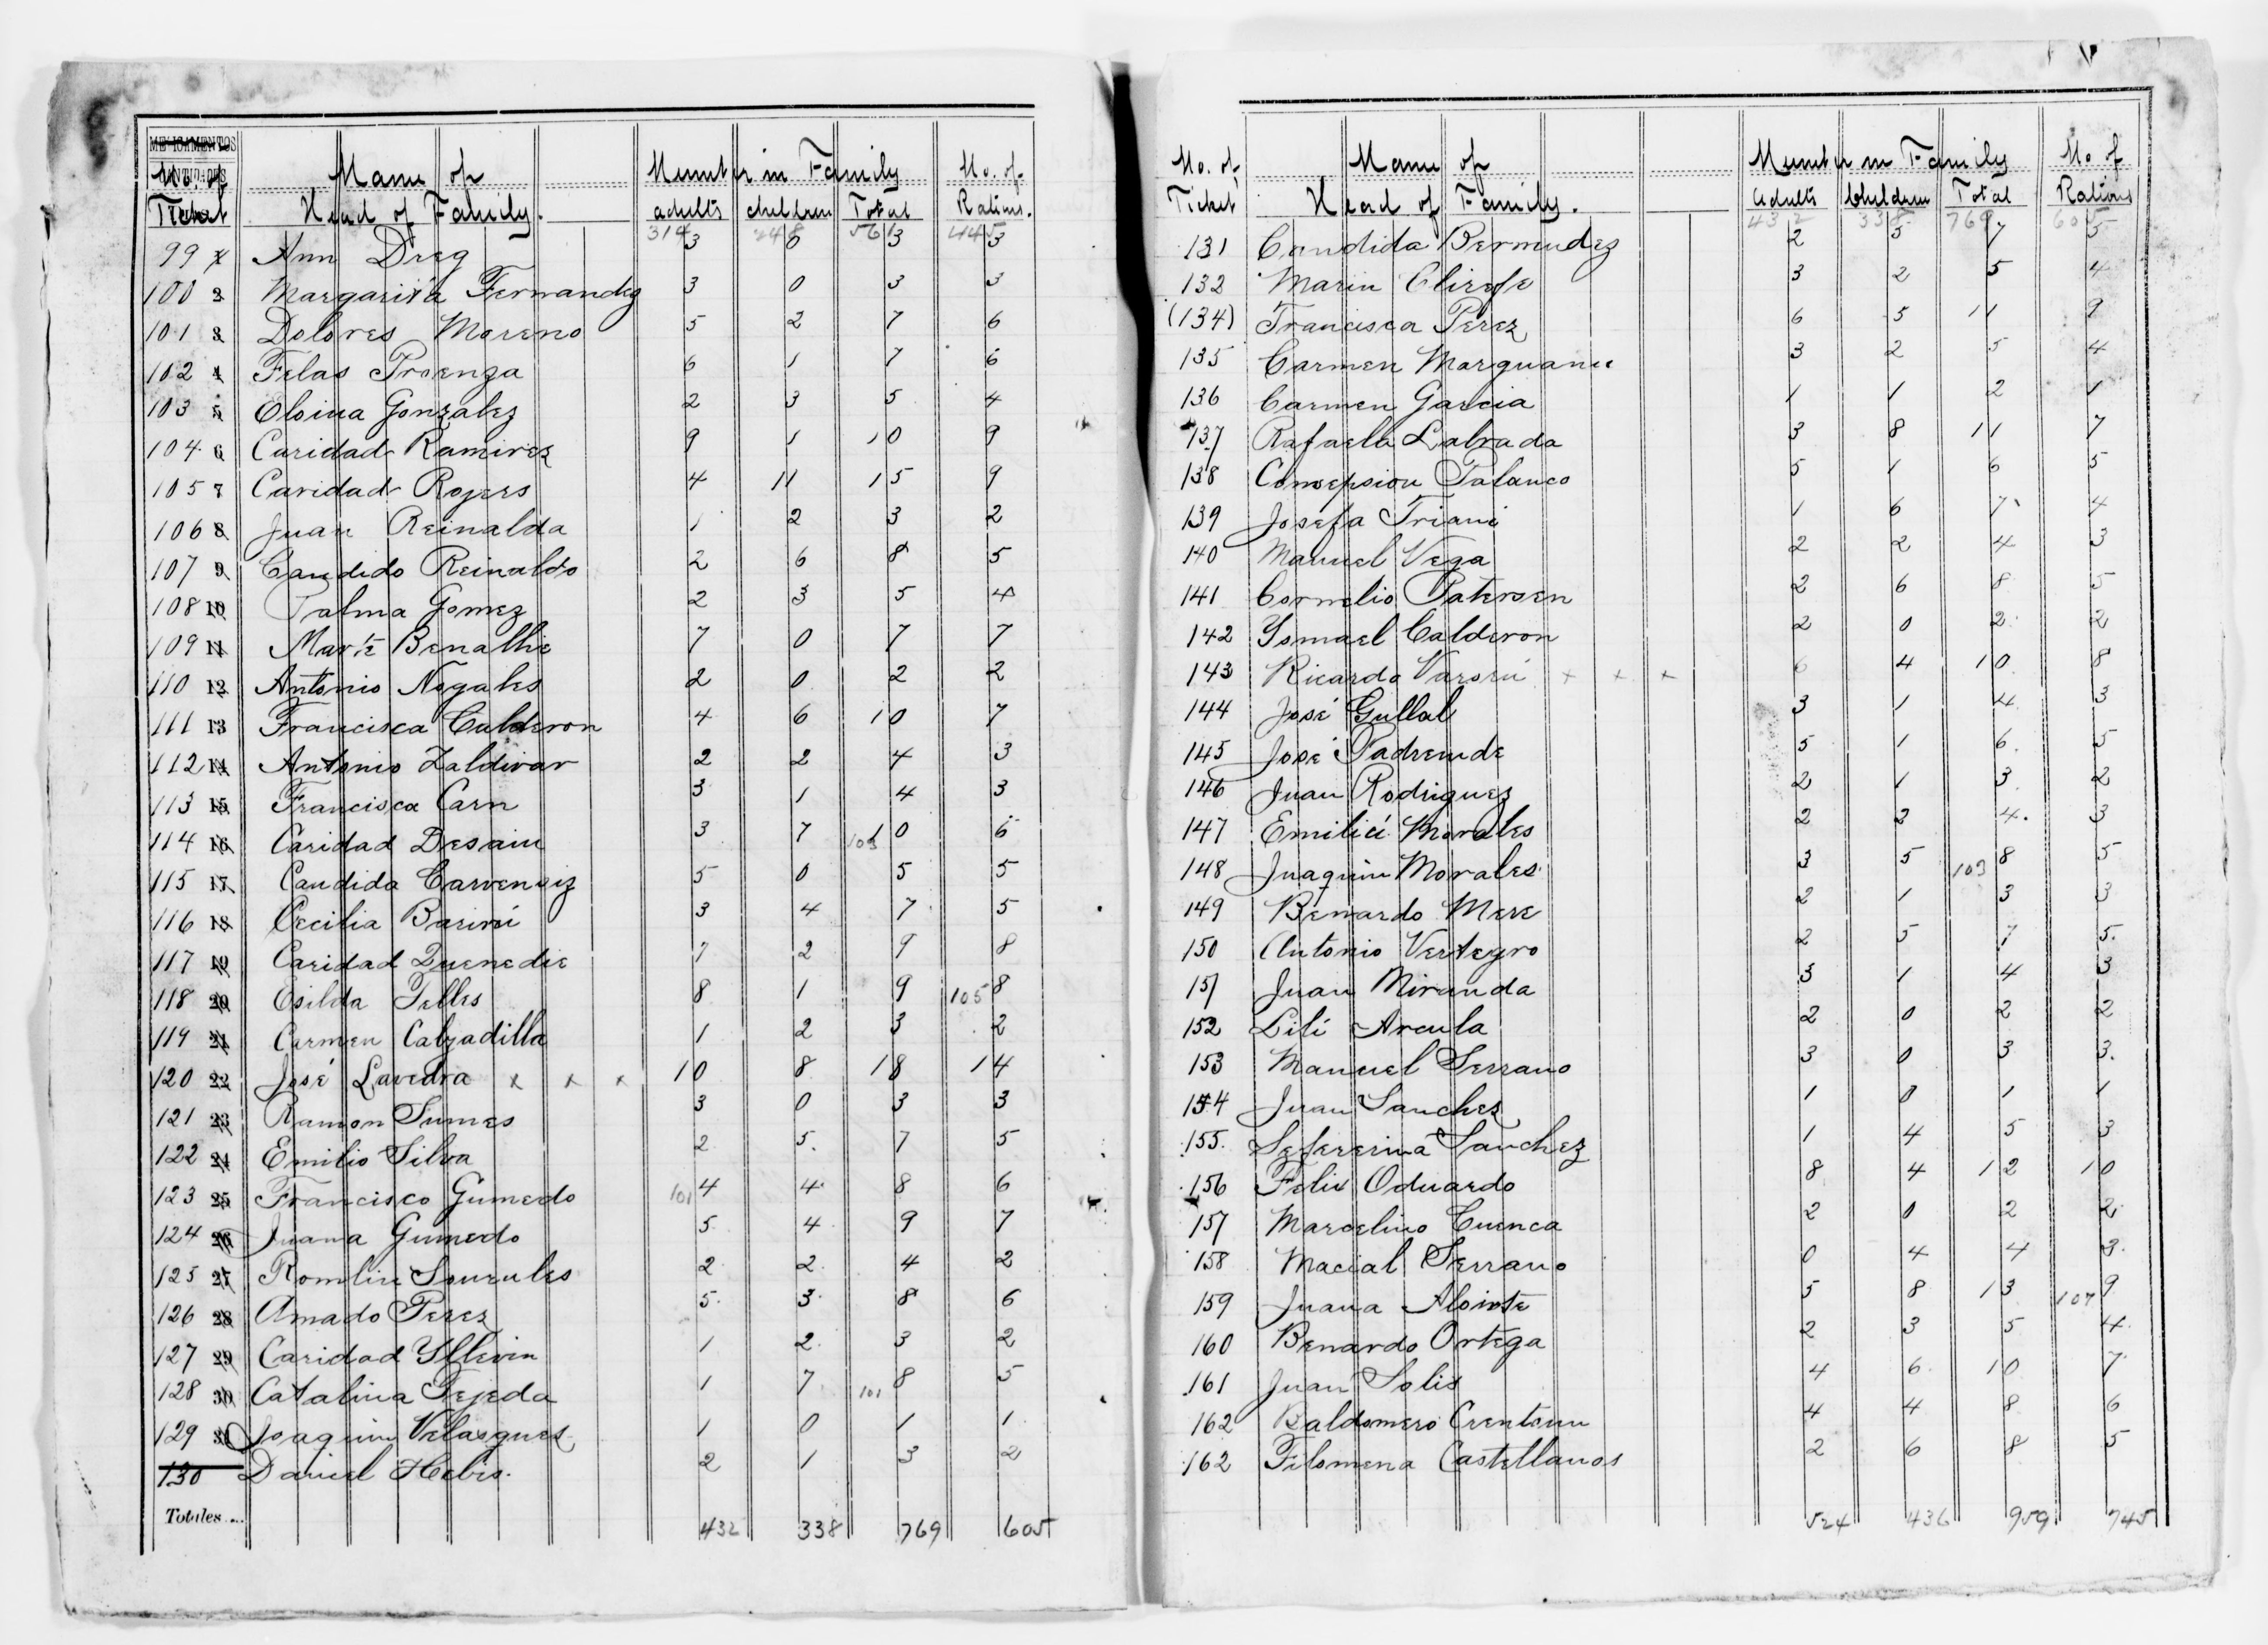 MEDICAMENTOS
No. of Name of Number in Family No. of
Ticket Head of Family. adults children Total Rations.
314 248 561 445
99 1 Ann Dreg 3 0 3 3
100 2 Margarita Fernandez 3 0 3 3
101 3 Dolores Moreno 5 2 7 6
102 4 Felas Proenza 6 1 7 6
103 5 Eloina Gonzalez 2 3 5 4
104 6 Caridad Ramirez 9 1 10 9
105 7 Caridad Rojers 4 11 15 9
106 8 Juan Reinalda 1 2 3 2
107 9 Candido Reinaldo 2 6 8 5
108 10 Palma Gomez 2 3 5 4
109 11 Benallie 7 0 7 7
110 12 Antonio Nogales 2 0 2 2
111 13 Francisca Calderon 4 6 10 7
112 14 Antonio Zaldivar 2 2 4 3
113 15 Francisca Carn 3 1 4 3
114 16 Caridad Desain 3 7 103 10 6
115 17 Candida 5 0 5 5
116 18 Cecilia 3 4 7 5
117 19 Caridad 7 2 9 8
118 20 Esilda Telles 8 1 9 105 8
119 21 Carmen Calzadilla 1 2 3 2
120 22 José Lavedra x x x 10 8 18 14
121 23 Ramon Sumes 3 0 3 3
122 24 Emilio Silva 2 5 7 5
123 25 Francisco Gumedo 101 4 4 8 6
124 26 Juana Gumedo 5 4 9 7
125 27 2 2 4 2
126 28 Amado Perez 5 3 8 6
127 29 Caridad Yllevin 1 2 3 2
128 30 Catalina Tejeda 1 7 101 8 5
129 31 Joaquin Velasques 1 0 1 1
130 Daniel Hebis. 2 1 3 2
Totales... 432 338 769 605
No. of Name of Number in Family No of
Ticket Head of Family. Adults Children Total Rations
432 338 769 605
131 Candida Bermudez 2 5 7 5
132 Marin 3 2 5 4
(134) Francisca Perez 6 5 11 9
135 Carmen 3 2 5 4
136 Carmen Garcia 1 1 2 1
137 Rafaela Labrada 3 8 11 7
138 Consepsion Palanco 5 1 6 5
139 Josefa Triani 1 6 7 4
140 Manuel Vega 2 2 4 3
141 Cornelio Patersen 2 6 8 5
142 Ysmael Calderon 2 0 2 2
143 Ricardo x x x 6 4 10 8
144 José Gullal 3 1 4 3
145 José Padremde 5 1 6 5
146 Juan Rodriguez 2 1 3 2
147 Emilia Morales 2 2 4. 3
148 Juaquin Morales 3 5 103 8 5
149 Benardo Mere 2 1 3 3
150 Antonio Vertegro 2 5 7 5.
151 Juan Miranda 3 1 4 3
152 Lili Arcula 2 0 2 2
153 Manuel Serrano 3 0 3 3.
154 Juan Sanchez 1 0 1 1
155. Seferina Sanchez 1 4 5 3
156 Felix Oduardo 8 4 12 10
157 Marcelino Cuenca 2 0 2 2
158 Macial Serrano 0 4 4 3.
159 Juana 5 8 13 107 9
160 Benardo Ortega 2 3 5 4
161 Juan Solis 4 6 10 7
162 Baldomero 4 4 8 6
162 Filomena Castellanos 2 6 8 5
524 436 959 745